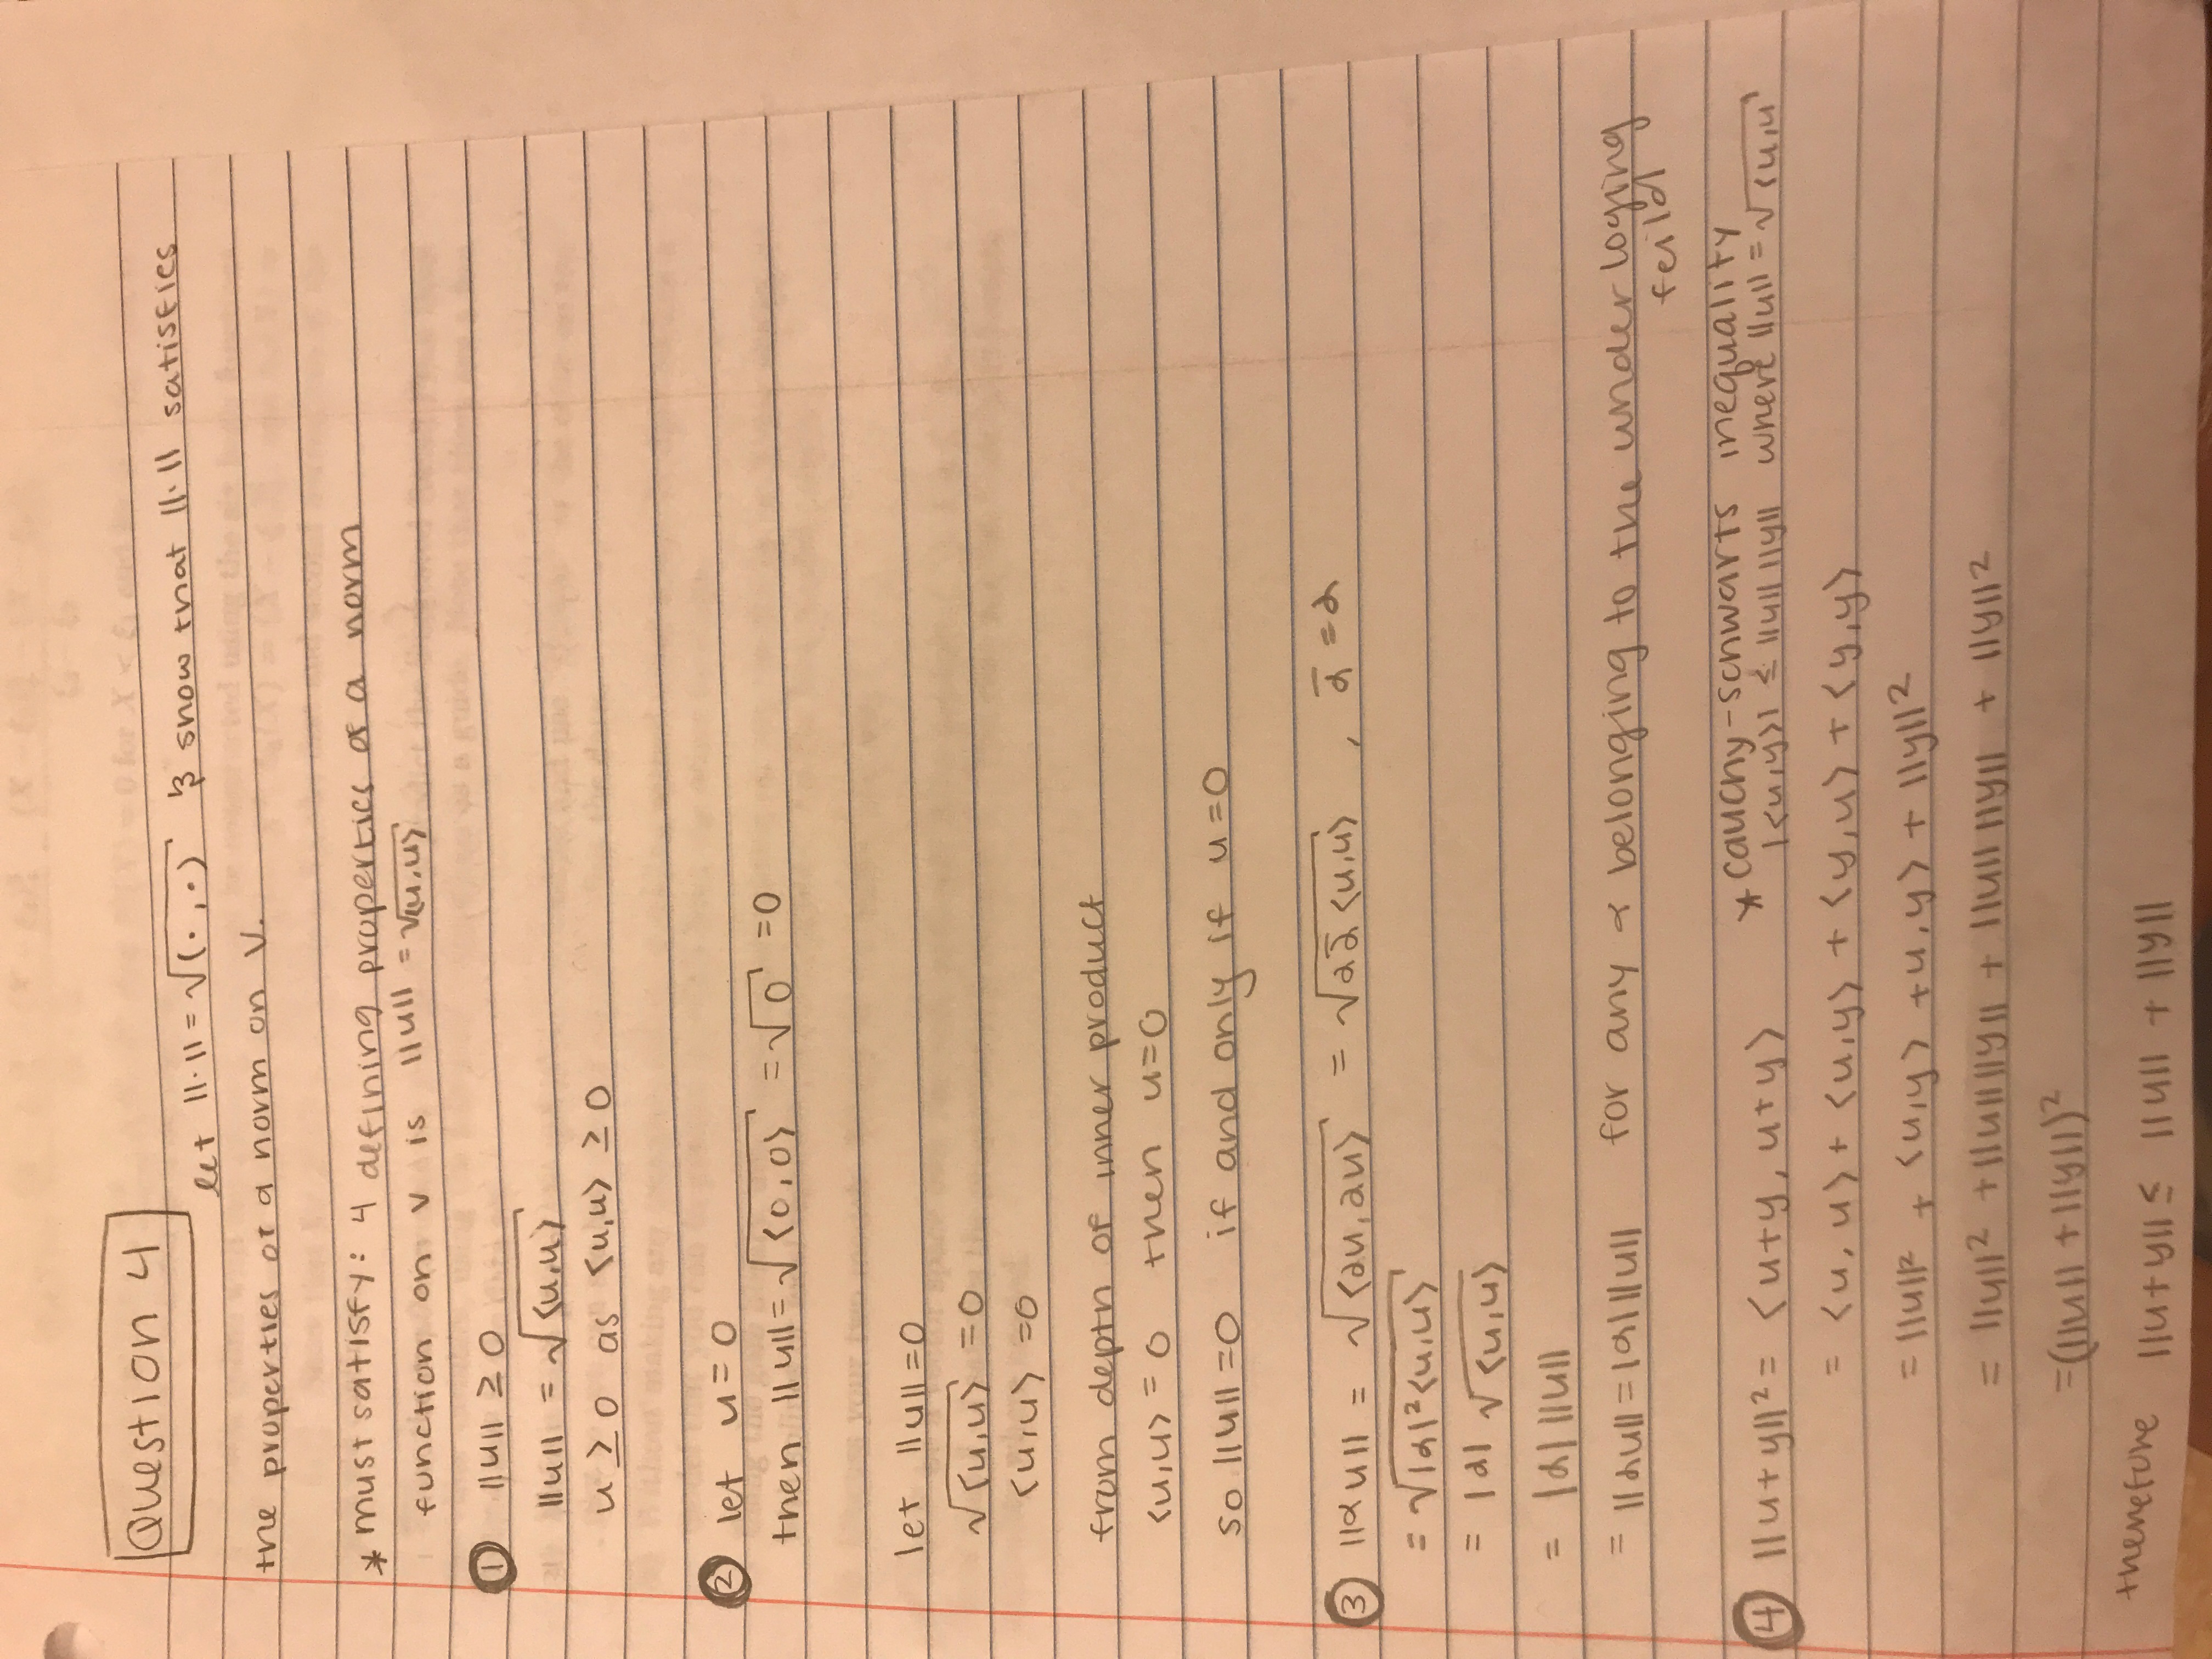 Question 4
let ||·|| = √(·,·) & show that ||·|| satisfies
the properties of a norm on V.
* must satisfy: 4 defining properties of a norm
function on V is ||u|| = √⟨u,u⟩
① ||u|| ≥ 0
||u|| = √⟨u,u⟩
u ≥ 0 as ⟨u,u⟩ ≥ 0
② let u = 0
then ||u|| = √⟨0,0⟩ = √0 = 0
let ||u|| = 0
√⟨u,u⟩ = 0
⟨u,u⟩ = 0
from deptn of inner product
⟨u,u⟩ = 0 then u=0
so ||u|| = 0 if and only if u=0
③ ||αu|| = √⟨αu,αu⟩ = √αᾱ⟨u,u⟩ , ᾱ = α
= √|α|²⟨u,u⟩
= |α| √⟨u,u⟩
= |α| ||u||
= ||αu|| = |α| ||u|| for any α belonging to the under loging
feild
* cauchy-schwarts inequality
④ ||u+y||² = ⟨u+y, u+y⟩ |⟨u,y⟩| ≤ ||u|| ||y|| where ||u|| = √⟨u,u
= ⟨u,u⟩ + ⟨u,y⟩ + ⟨y,u⟩ + ⟨y,y⟩
= ||u||² + ⟨u,y⟩ + u,y⟩ + ||y||²
= ||u||² + ||u|| ||y|| + ||u|| ||y|| + ||y||²
= (||u|| + ||y||)²
therefore ||u+y|| ≤ ||u|| + ||y||